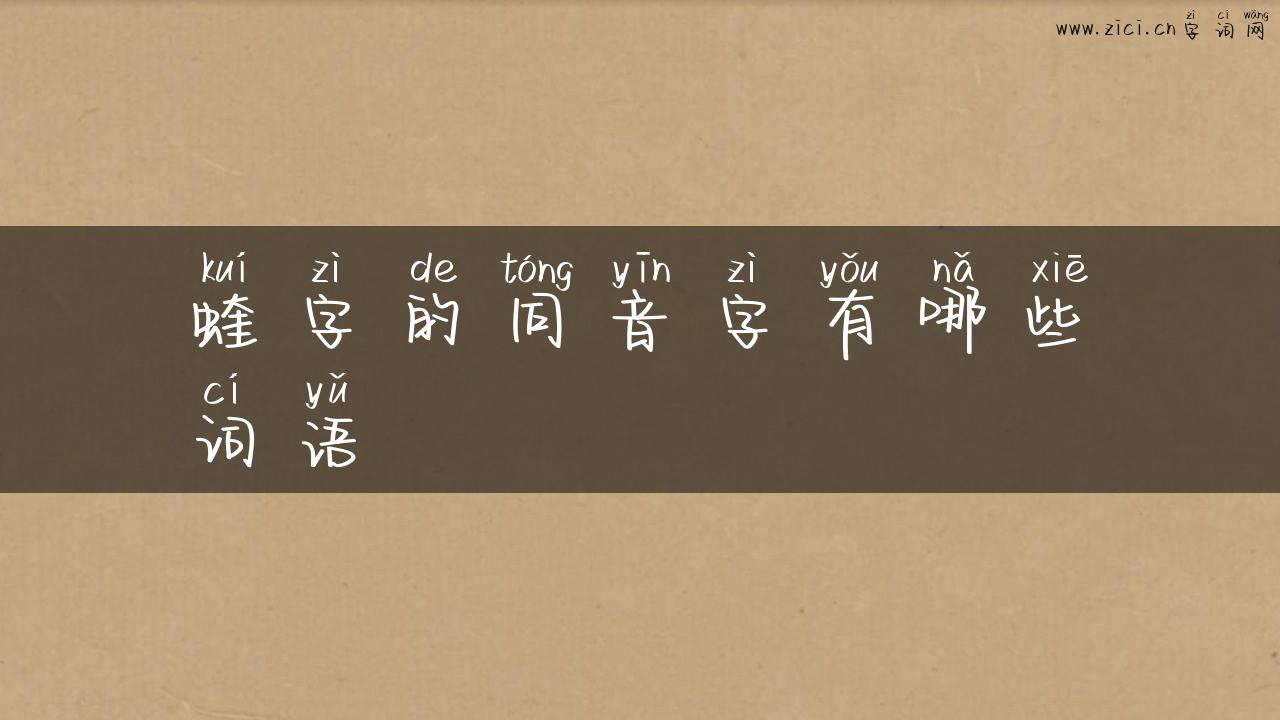 zì cí wǎng
www.zici.cn 字 词 网
kuí zì de tóng yīn zì yǒu nǎ xiē
蝰 字 的 同 音 字 有 哪 些
cí yǔ
词 语